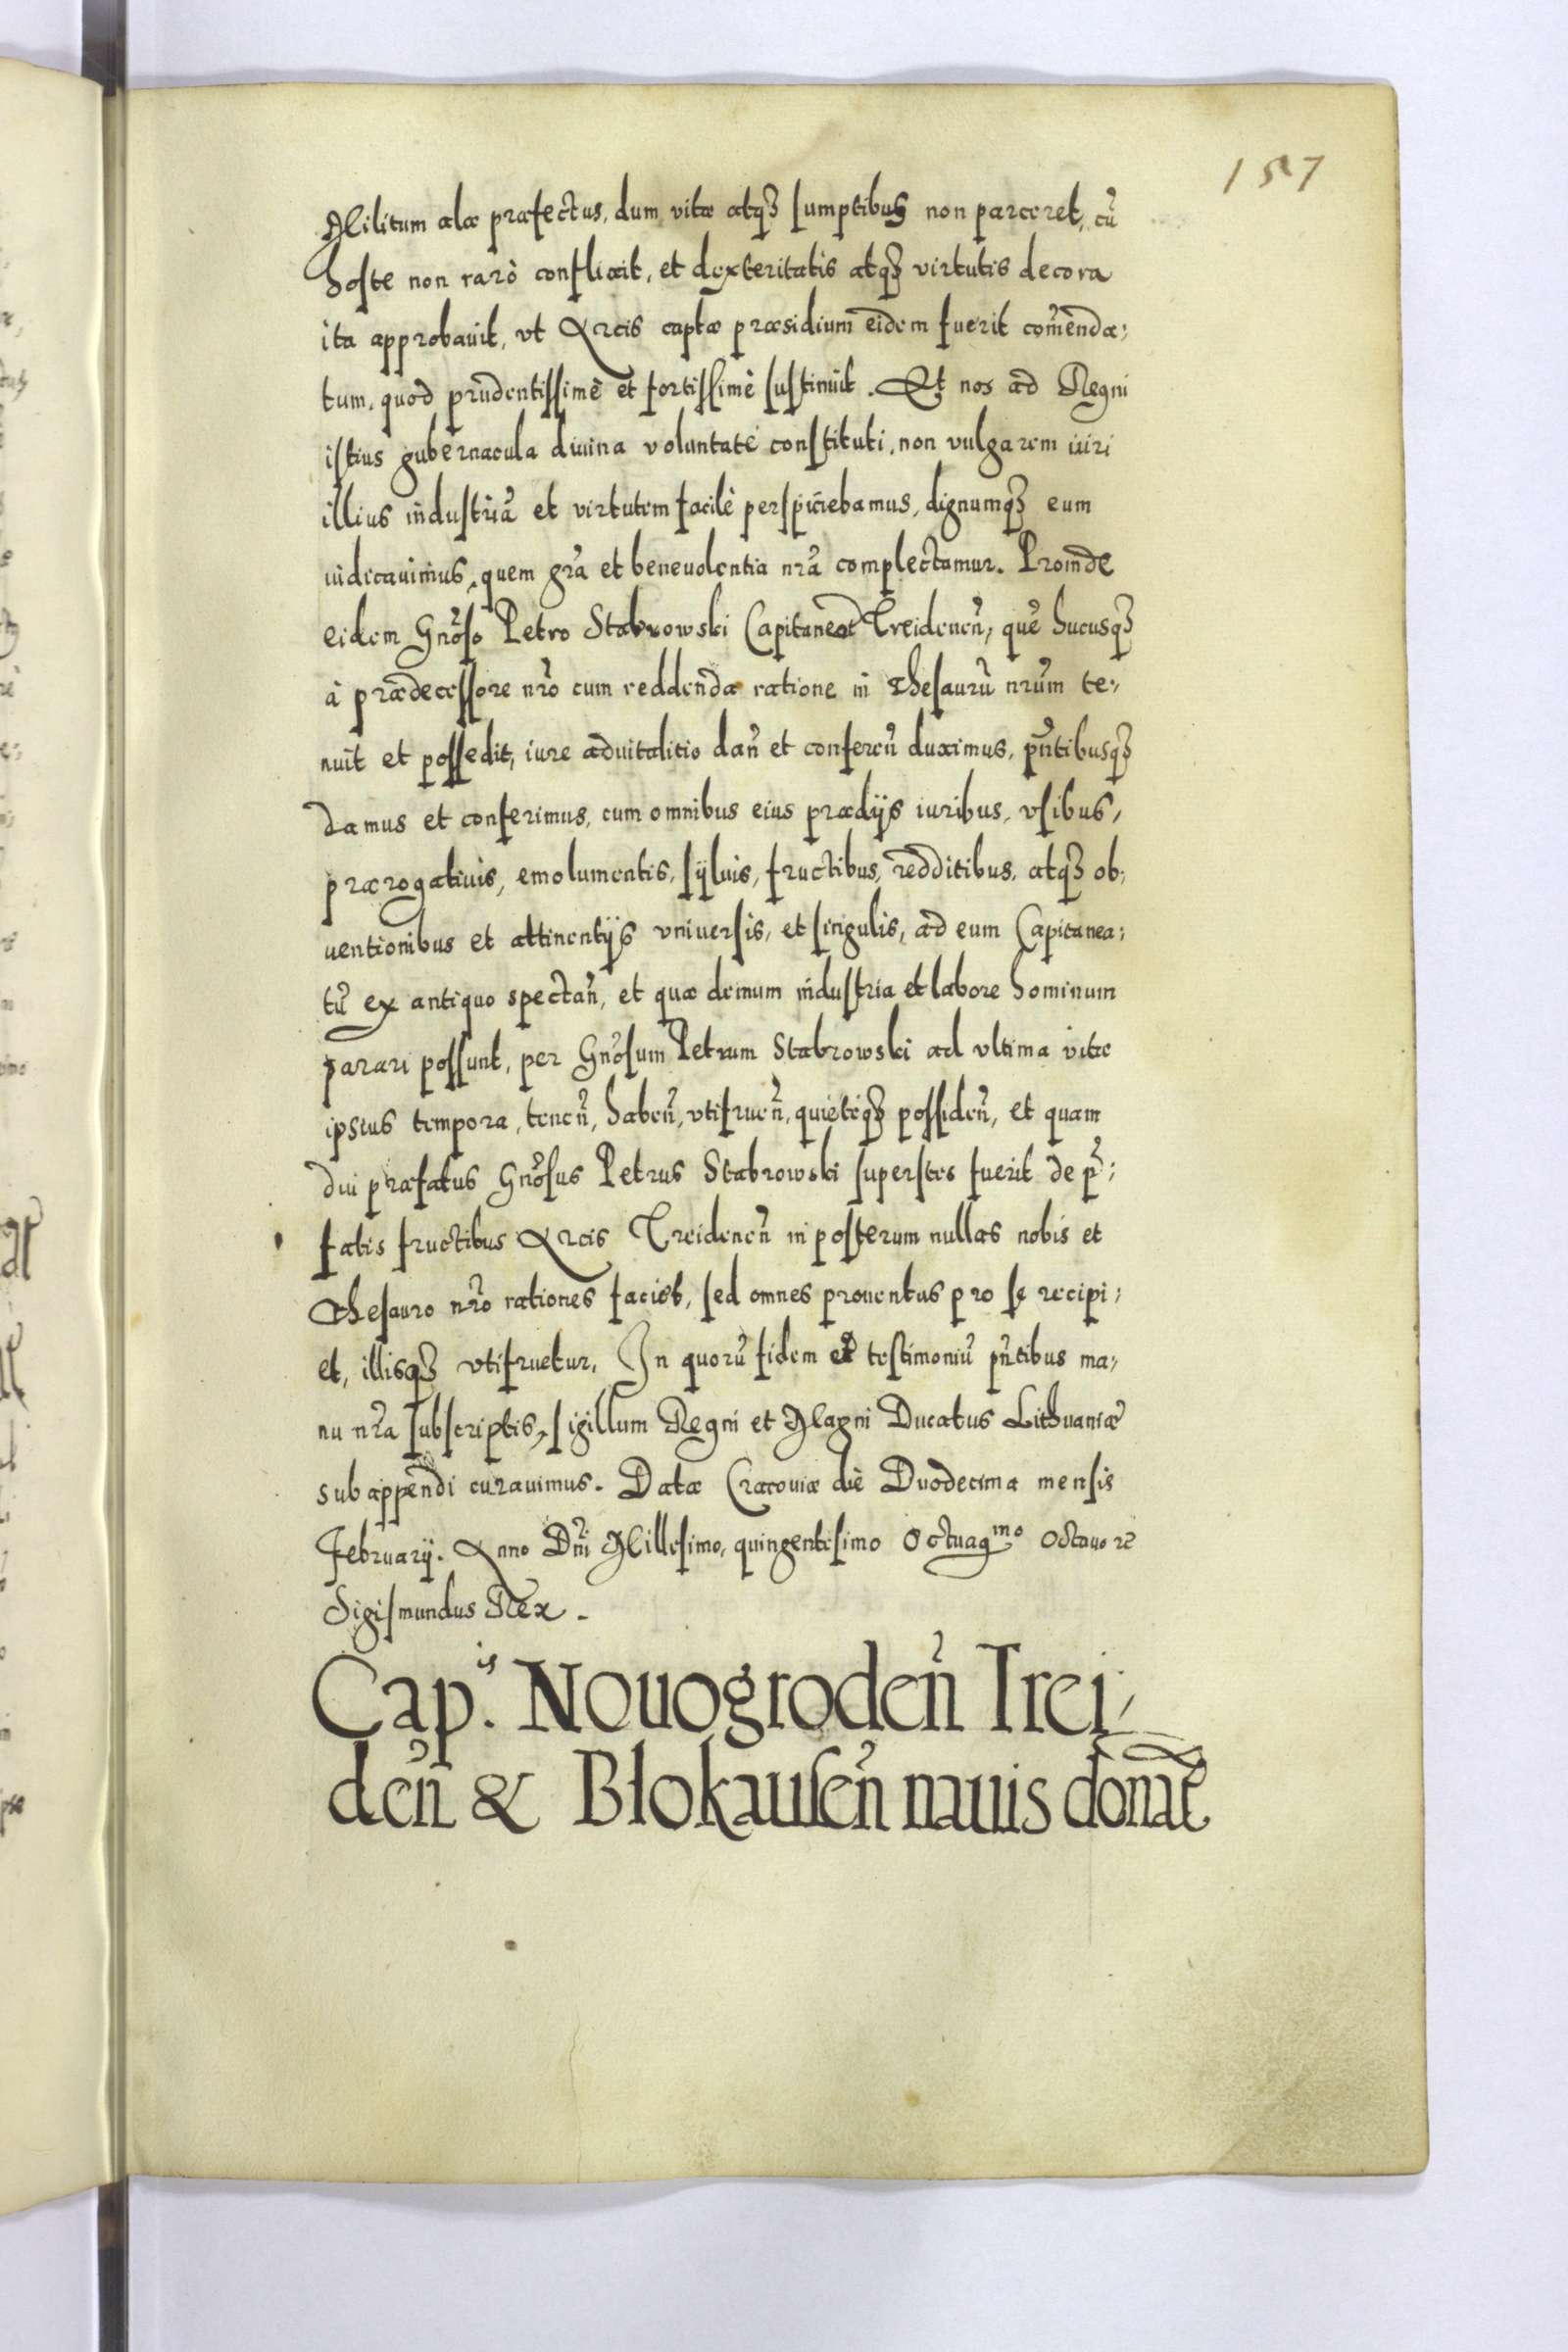 157
Militum alæ præfectus, dum vitæ atq3 sumptibus non parceret, cũ
hoste non rarò conflixit, et dexteritatis atq3 virtutis decora
ita approbauit, vt Arcis captæ præsidium eidem fuerit com̃enda;
tum, quod prudentissimè et fortissimè sustinuit. Et nos ad Regni
istius gubernacula diuina voluntate constituti, non vulgarem uiri
illius industriã et virtutem facilè perspiciebamus, dignumq3 eum
iudicauimus, quem gr̃a et beneuolentia nr̃a complectamur. Proinde
eidem Gnõso Petro Stabrowski Capitaneat Treidenen̄, quẽ hucusq3
à prædecessore nr̃o cum reddenda ratione in Thesaurũ nr̃um te;
nuit et possedit, iure aduitalitio dañ et conferen̄ duximus, pn̄tibusq3
damus et conferimus, cum omnibus eius prædijs iuribus, vsibus,
prærogatiuis, emolumentis, syluis, fructibus, redditibus, atq3 ob;
uentionibus et attinentijs vniuersis, et singulis, ad eum Capitanea;
tũ ex antiquo spectañ, et quæ demum industria et labore hominum
parari possunt, per Gnõsum Petrum Stabrowski ad vltima vitæ
ipsius tempora, tenen̄, haben̄, vtifruen̄, quietéq3 possiden̄, et quam
diu præfatus Gnõsus Petrus Stabrowski superstes fuerit de p̃;
fatis fructibus Arcis Treidenen̄ in posterum nullas nobis et
Thesauro nr̃o rationes faciet, sed omnes prouentus pro se recipi;
et, illisq3 vtifruetur. In quorũ fidem et testimoniũ pñtibus ma,
nu nr̃a subscriptis, sigillum Regni et Magni Ducatus Lithuaniæ
subappendi curauimus. Datæ Cracouiæ die Duodecima mensis
February. Anno Dñi Millesimo, quingentesimo Octuagmo Octauo re
Sigismundus Rex.
Cap.is Nouogroden̄ Trei,
den̄ & Blokausen̄ nauis donat